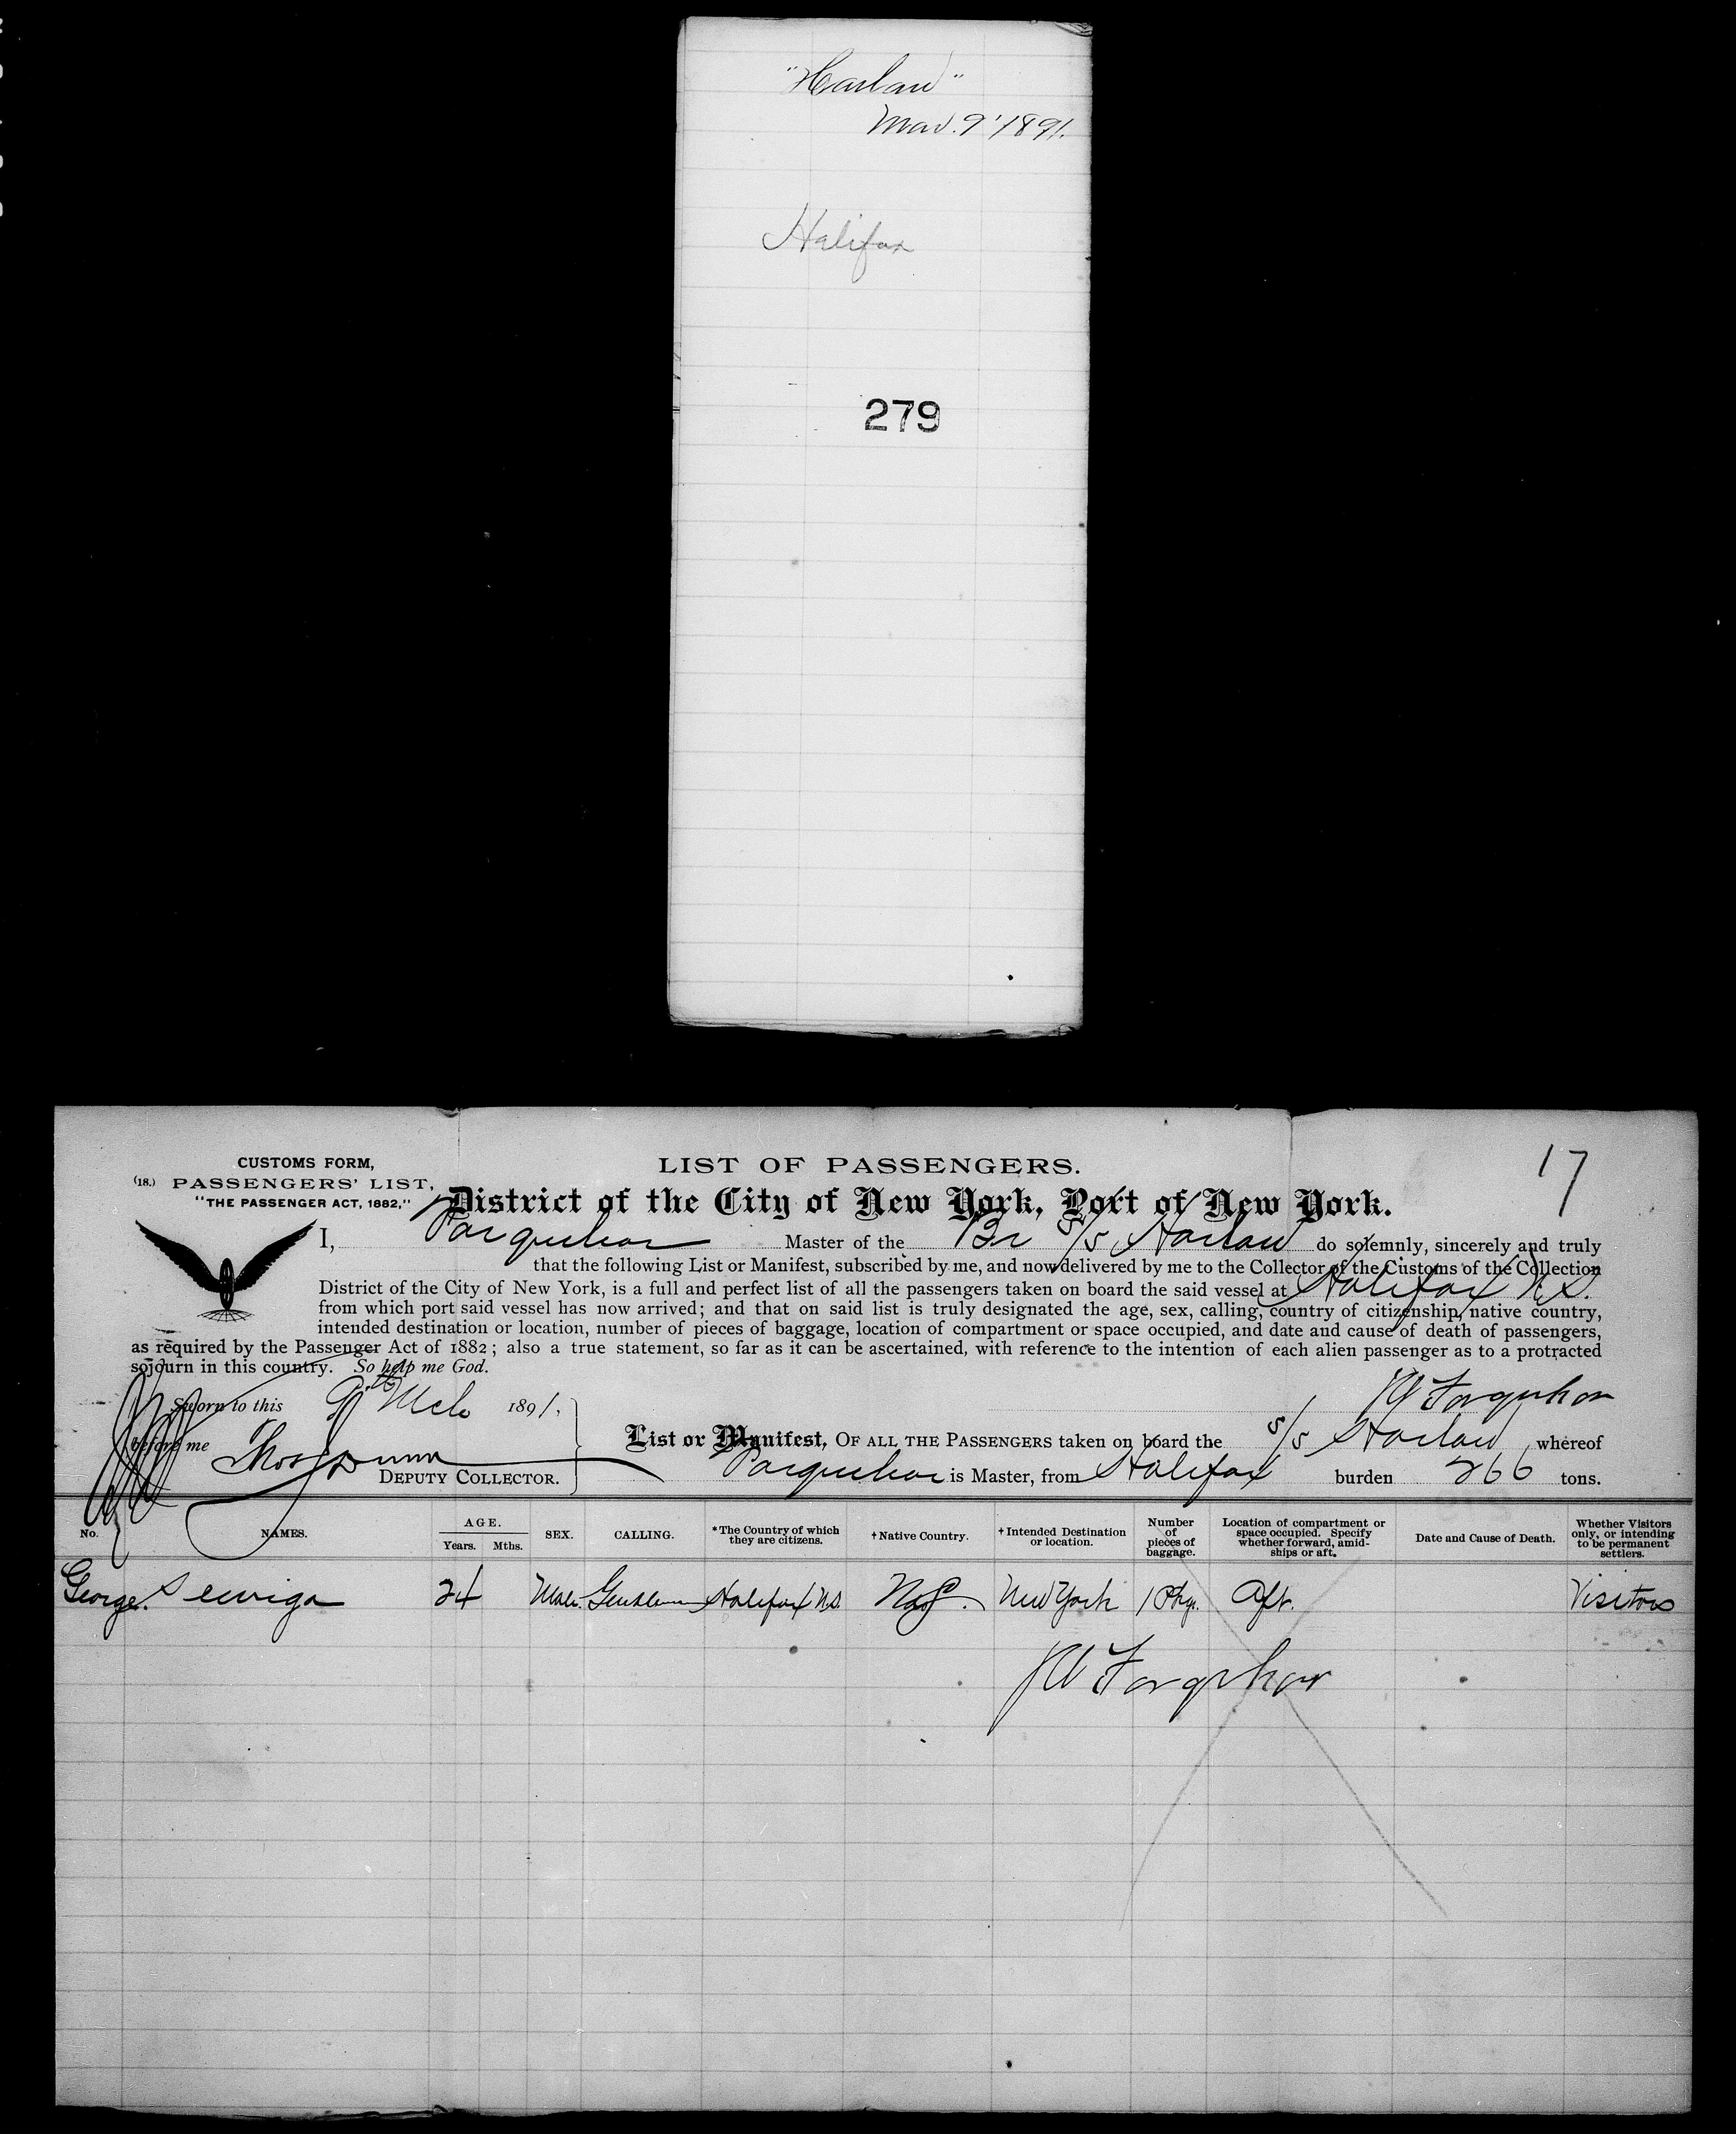 "Harlaw"
Mar. 9' 1891.
Halifax
279
17
CUSTOMS FORM,
(18.) PASSENGERS' LIST,
"THE PASSENGER ACT, 1882,"
LIST OF PASSENGERS.
District of the City of New York, Port of New York.
I, Farquhar Master of the Br S/S Harlaw do solemnly, sincerely and truly
that the following List or Manifest, subscribed by me, and now delivered by me to the Collector of the Customs of the Collection
District of the City of New York, is a full and perfect list of all the passengers taken on board the said vessel at Halifax N.S.
from which port said vessel has now arrived; and that on said list is truly designated the age, sex, calling, country of citizenship, native country,
intended destination or location, number of pieces of baggage, location of compartment or space occupied, and date and cause of death of passengers,
as required by the Passenger Act of 1882; also a true statement, so far as it can be ascertained, with reference to the intention of each alien passenger as to a protracted
sojourn in this country. So help me God.
Sworn to this 9th Mch 1891,
JA Farquhar
before me Thos Dunn
DEPUTY COLLECTOR.
List or Manifest, OF ALL THE PASSENGERS taken on board the S/S Harlaw whereof
Farquhar is Master, from Halifax burden 266 tons.
No. NAMES. AGE. Years. Mths. SEX. CALLING. *The Country of which they are citizens. †Native Country. †Intended Destination or location. Number of pieces of baggage. Location of compartment or space occupied. Specify whether forward, amidships or aft. Date and Cause of Death. Whether Visitors only, or intending to be permanent settlers.
George 24 Male Gentleman Halifax N.S. New York 1 Pkg. Aft. Visitors
JA Farquhar